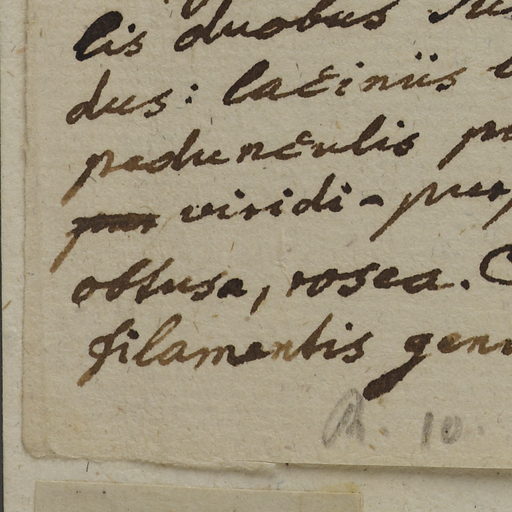 lis duobus
dus: laciniis
pedunculis
viridi-pur
obtusa, rosea. C
filamentis gen
10.